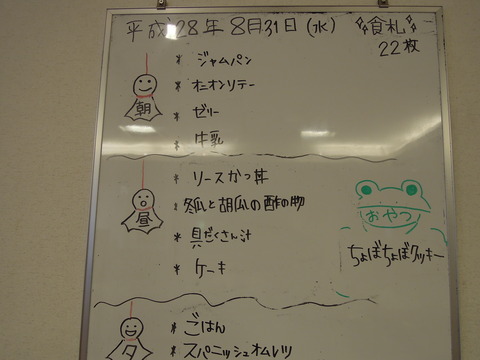 平成28年8月31日(水)
食札
22枚
朝
* ジャムパン
* オニオンソテー
* ゼリー
* 牛乳
昼
* ソースかつ丼
* 冬瓜と胡瓜の酢の物
* 具だくさん汁
* ケーキ
おやつ
ちょぼちょぼクッキー
夕
* ごはん
* スパニッシュオムレツ